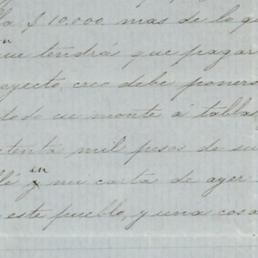 $10,000 mas de lo q
que tendrá que pagar
oyecto, creo debe poners
do de un monte á tablas
tenta mil pesos de su
lé en mi carta de ayer
este pueblo, y una cosa